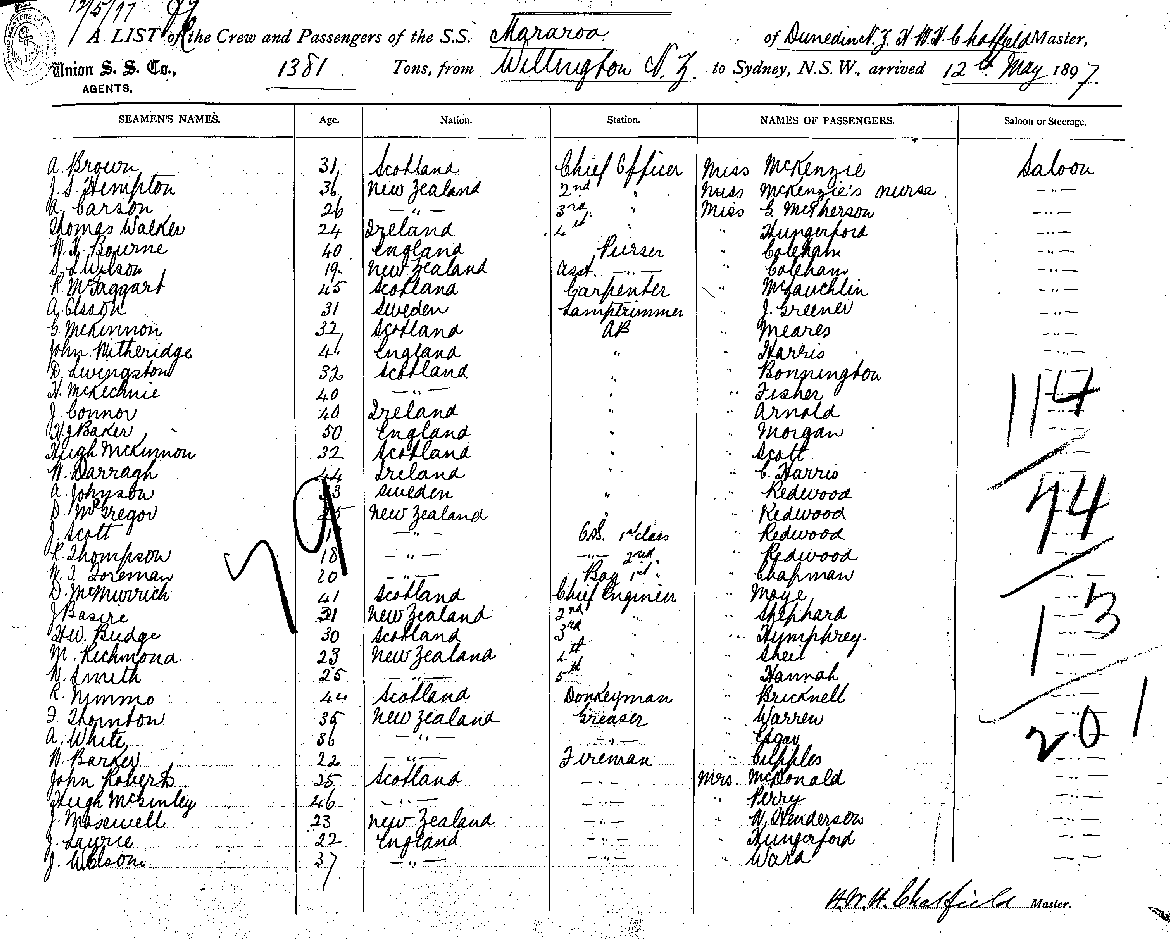 12/5/97
A LIST of the Crew and Passengers of the S.S. Mararoa of Dunedin N.Z. H W H Chatfield Master,
Union S. S. Co., 1381 Tons, from Wellington N.Z. to Sydney, N.S.W., arrived 12th May 1897
AGENTS.
SEAMEN'S NAMES. Age. Nation. Station. NAMES OF PASSENGERS. Saloon or Steerage.
A. Brown 31 Scotland Chief Officer Miss McKenzie Saloon
J. S. Hempton 36 New Zealand 2nd " Miss McKenzie's nurse —"—
A. Carson 26 —"— 3rd " Miss C. McPherson —"—
Thomas Walker 24 Ireland 4th " Hungerford —"—
W. H. Bourne 40 England Purser " Coleham —"—
S. L. Wilson 19 New Zealand Asst —"— " Coleham —"—
R. McTaggart 45 Scotland Carpenter " McLauchlin —"—
A. Olsson 31 Sweden Lamptrimmer " J. Greener —"—
C. McKinnon 32 Scotland AB " Meares —"—
John Witheridge 44 England " " Harris —"—
D. Livingston 32 Scotland " " Bonnington —"—
H. McKechnie 40 —"— " " Fisher —"—
J. Connor 40 Ireland " " Arnold 114
W. J. Baker 50 England " " Morgan —"—
Hugh McKinnon 32 Scotland " " Scott —"—
W. Darragh 44 Ireland " " C. Harris —"—
A. Johnson Sweden " " Redwood —"—
D. McGregor New Zealand " Redwood 74
J. Scott —"— O.S. 1st class " Redwood —"—
R. Thompson 18 —"— —"— 2nd " " Redwood —"—
W. J. Foreman 20 —"— Boy 1st " " Chapman —"—
D. McMurrich 41 Scotland Chief Engineer " Moye —"—
J. Basire 31 New Zealand 2nd " " Shephard 13
H. W. Budge 30 Scotland 3rd " " Humphrey —"—
M. Richmond 23 New Zealand 4th " " Sheil —"—
W. Smith 25 —"— 5th " " Hannah —"—
R. Nimmo 44 Scotland Donkeyman " Bricknell —"—
F. Thornton 35 New Zealand Greaser " Warren 201
A. White 36 —"— —"— "
W. Barker 22 —"— Fireman " Cupples —"—
John Roberts 25 Scotland —"— Mrs. McDonald —"—
Hugh McGinley 46 —"— —"— " Perry —"—
J. Mosewell 23 New Zealand —"— " W. Henderson —"—
J. Lawrie 22 England —"— " Hungerford —"—
J. Wilson 37 —"— —"— " Ward —"—
79
H. W. H. Chatfield Master.